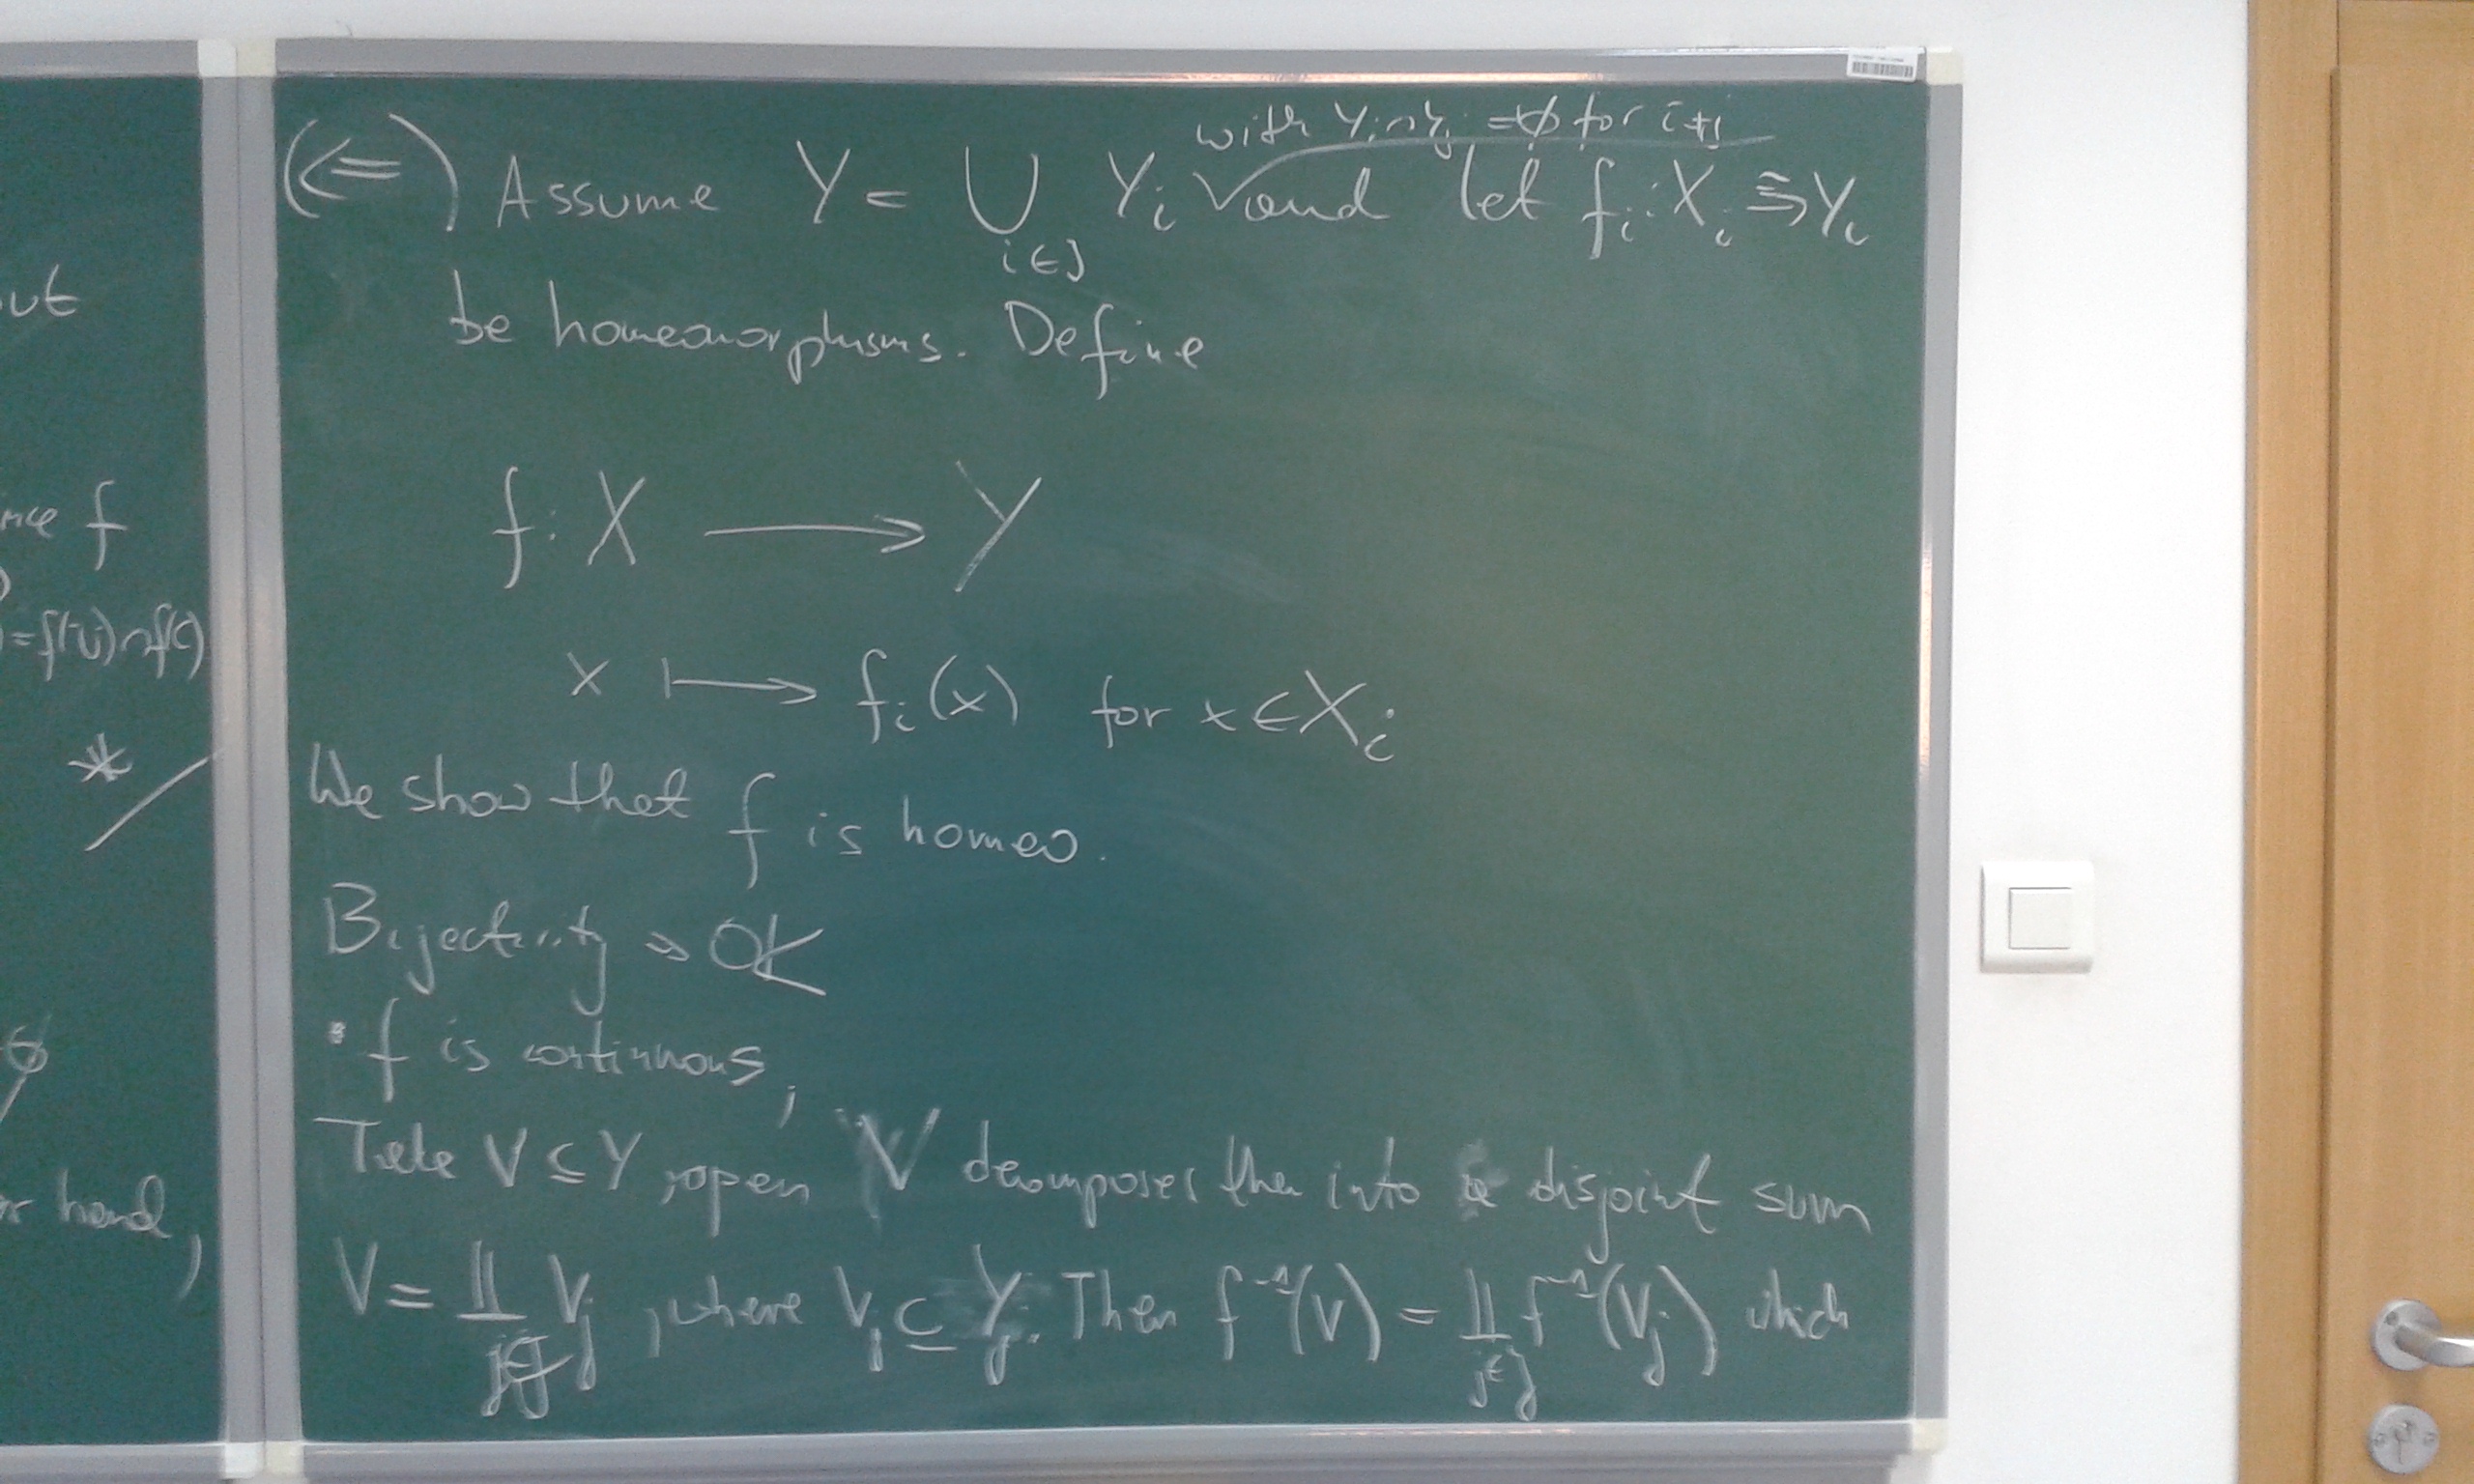 ut
f
) = f(U) ∩ f(C)
*
hand,
with Yi ∩ Yj = ∅ for i ≠ j
(<=) Assume Y = ∪ Yi and let fi : Xi ≅> Yi
i∈J
be homeomorphisms. Define
f : X ⟶ Y
x ⟼ fi(x) for x ∈ Xi
We show that f is homeo.
Bijectivity ⇒ OK
• f is continuous,
Take V ⊆ Y, open, V decomposes then into a disjoint sum
V = ∐ Vj, where Vj ⊆ Yj. Then f⁻¹(V) = ∐ f⁻¹(Vj) which
j∈J j∈J